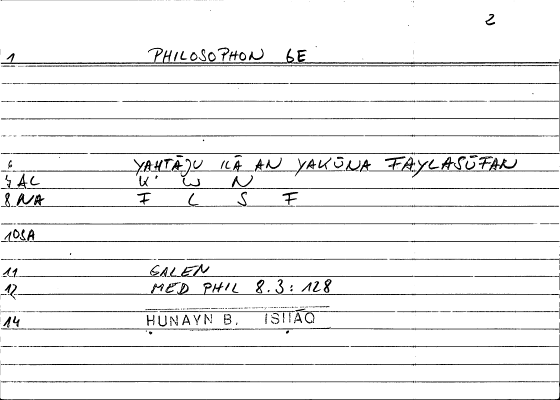 2
1 PHILOSOPHON GE
6 YAHTĀJU ILĀ AN YAKŪNA FAYLASŪFAN
7 AL K W N
8 NA F L S F
10 SA
11 GALEN
12 MED PHIL 8.3: 128
14 HUNAYN B. ISḤĀQ